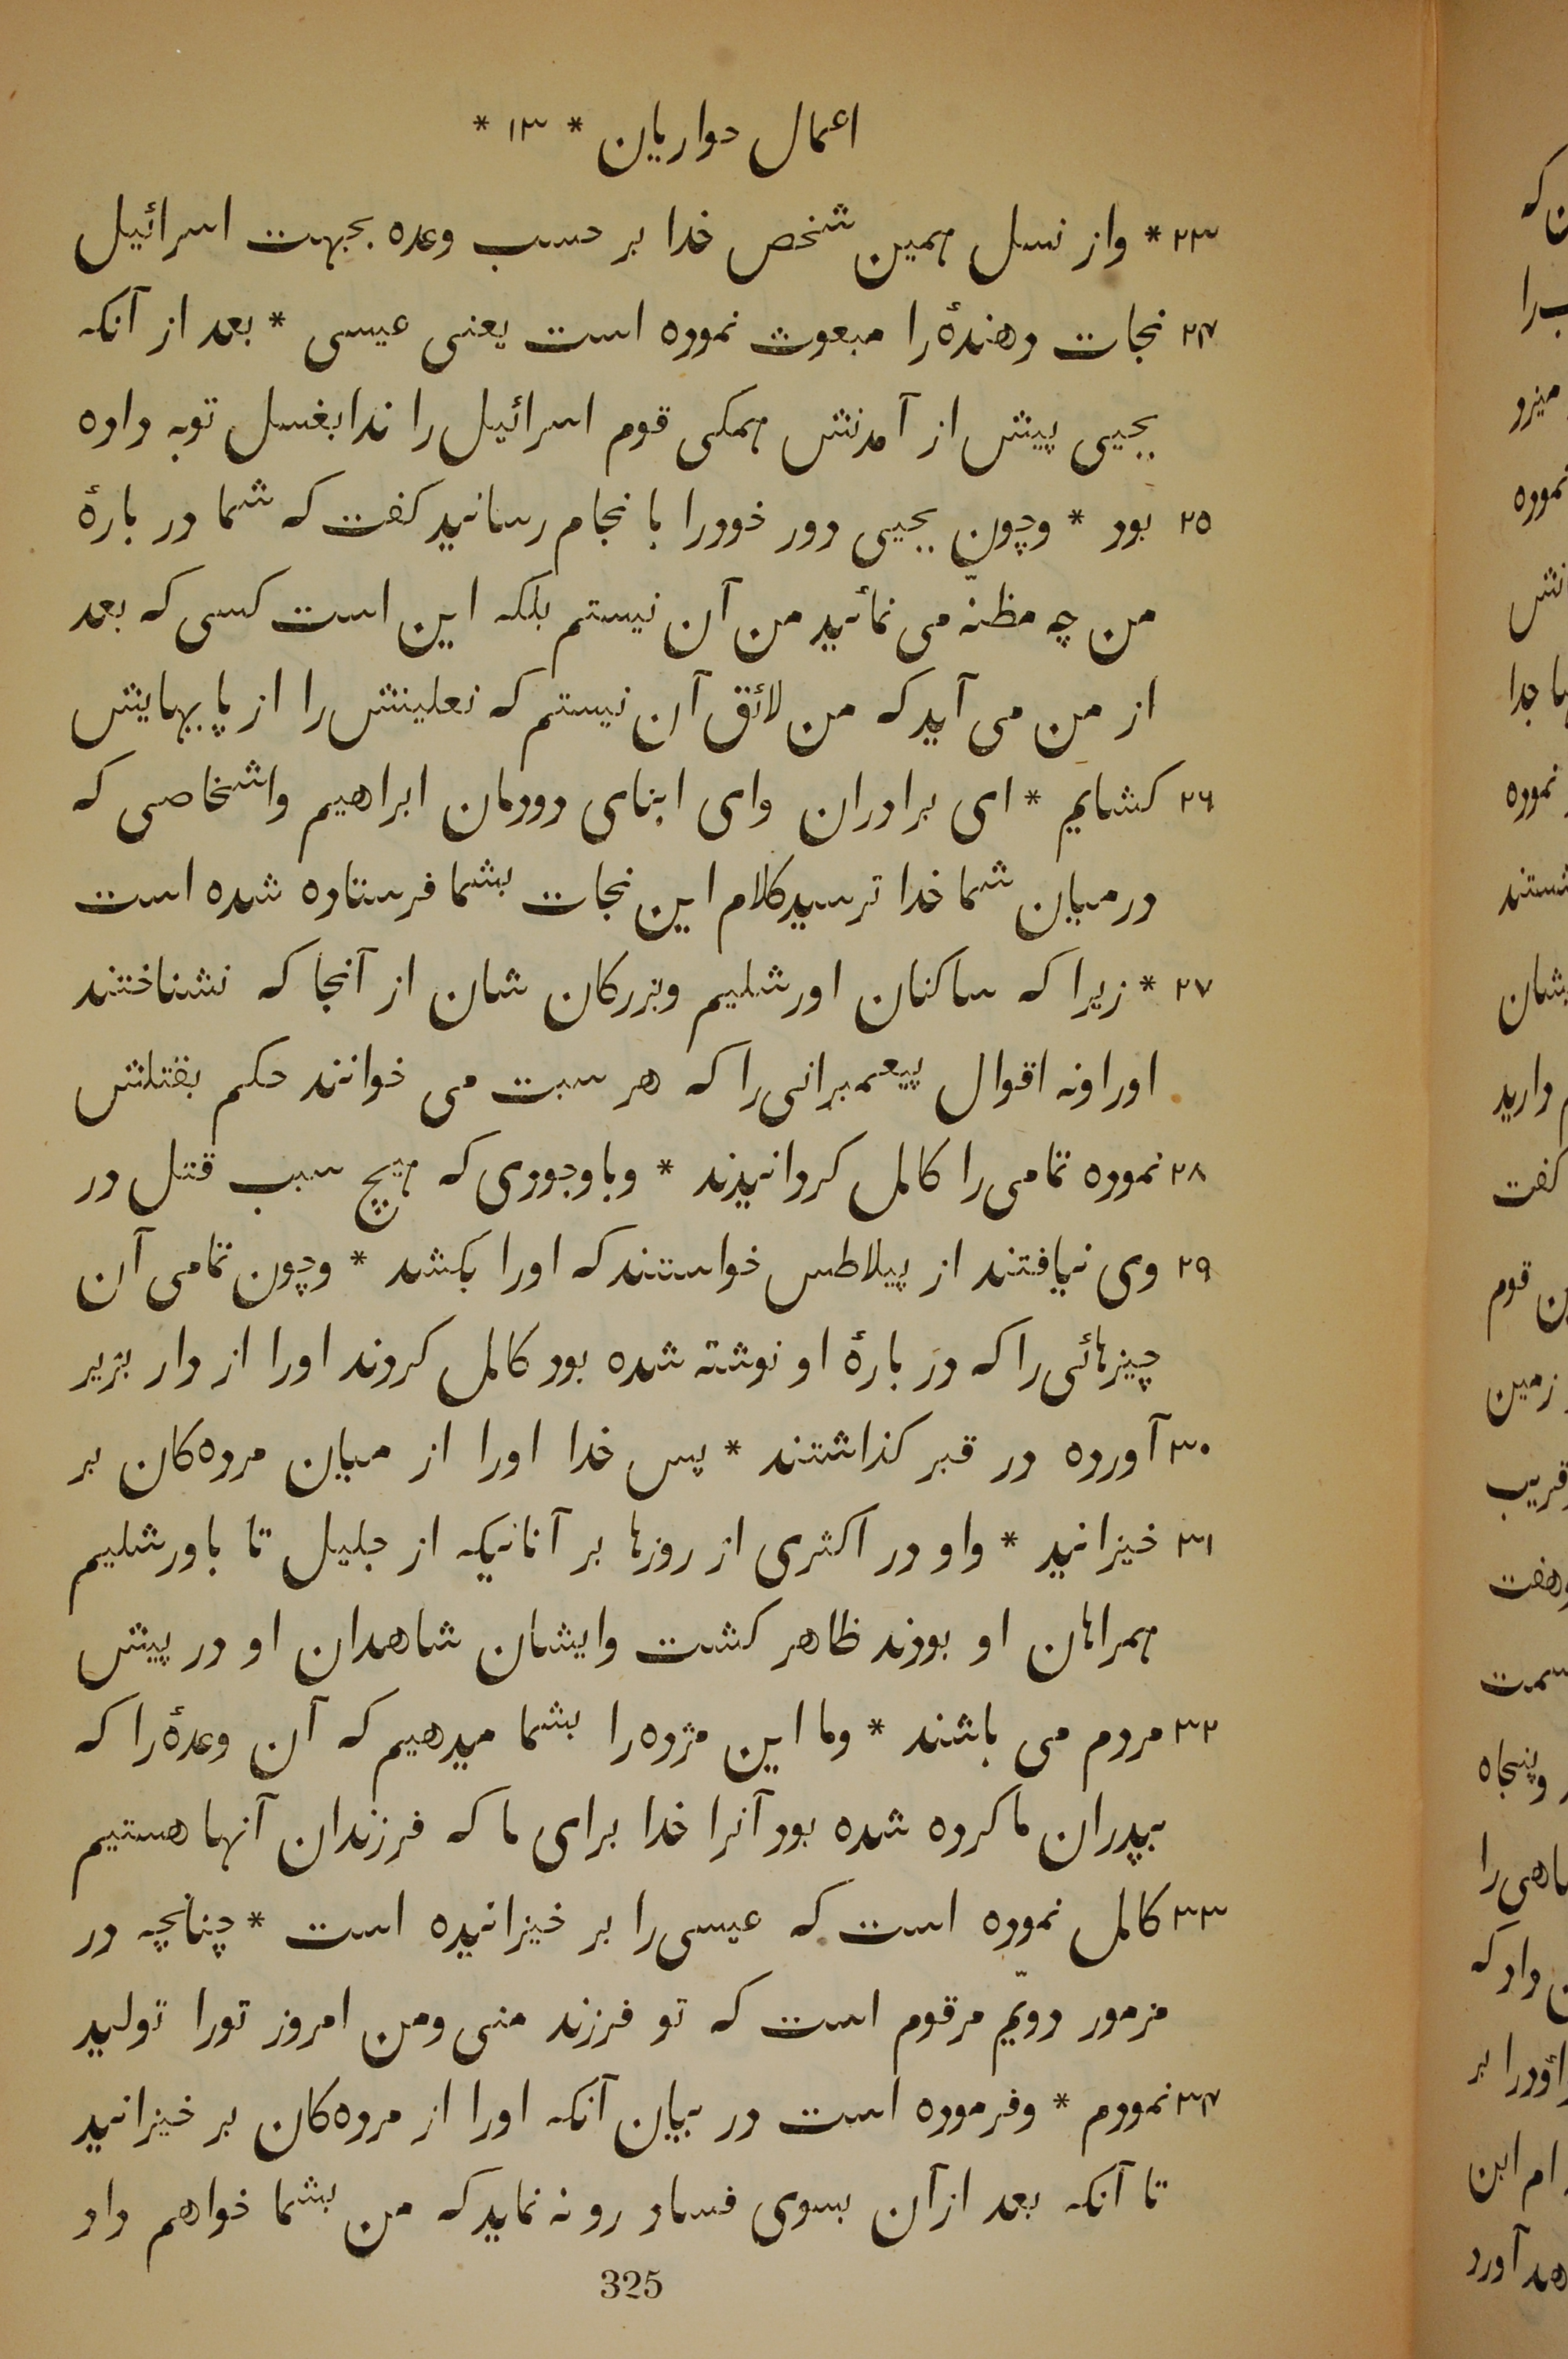 اعمال حواریان * ۱۳ *
۲۳ * واز نسل همین شخص خدا بر حسب وعده بجهت اسرائیل
۲۴ نجات دهندۀ را مبعوث نموده است یعنی عیسی * بعد از آنکه
یحیی پیش از آمدنش همکی قوم اسرائیل را ندا بغسل توبه داده
۲۵ بود * وچون یحیی دور خودرا با نجام رسانید کفت که شما در بارۀ
من چه مظنّه می نمائید من آن نیستم بلکه این است کسی که بعد
از من می آید که من لائق آن نیستم که نعلینش را از پایهایش
۲۶ کشایم * ای برادران وای ابنای دودمان ابراهیم واشخاصی که
در میان شما خدا ترسید کلام این نجات بشما فرستاده شده است
۲۷ * زیرا که ساکنان اورشلیم وبزرکان شان از آنجا که نشناختند
اورا ونه اقوال پیغمبرانی را که هر سبت می خوانند حکم بقتلش
۲۸ نموده تمامی را کامل کردانیدند * وبا وجودی که هیچ سبب قتل در
۲۹ وی نیافتند از پیلاطس خواستند که اورا بکشد * وچون تمامی آن
چیزهائی را که در بارۀ او نوشته شده بود کامل کردند اورا از دار بزیر
۳۰ آورده در قبر کذاشتند * پس خدا اورا از میان مرده‌کان بر
۳۱ خیزانید * واو در اکثری از روزها بر آنانیکه از جلیل تا باورشلیم
همراهان او بودند ظاهر کشت وایشان شاهدان او در پیش
۳۲ مردم می باشند * وما این مژده را بشما میدهیم که آن وعدۀ را که
بپدران ما کرده شده بود آنرا خدا برای ما که فرزندان آنها هستیم
۳۳ کامل نموده است که عیسی را بر خیزانیده است * چنانچه در
مزمور دویّم مرقوم است که تو فرزند منی ومن امروز تورا تولید
۳۴ نمودم * وفرموده است در بیان آنکه اورا از مرده‌کان بر خیزانید
تا آنکه بعد از آن بسوی فساد رو نه نماید که من بشما خواهم داد
325